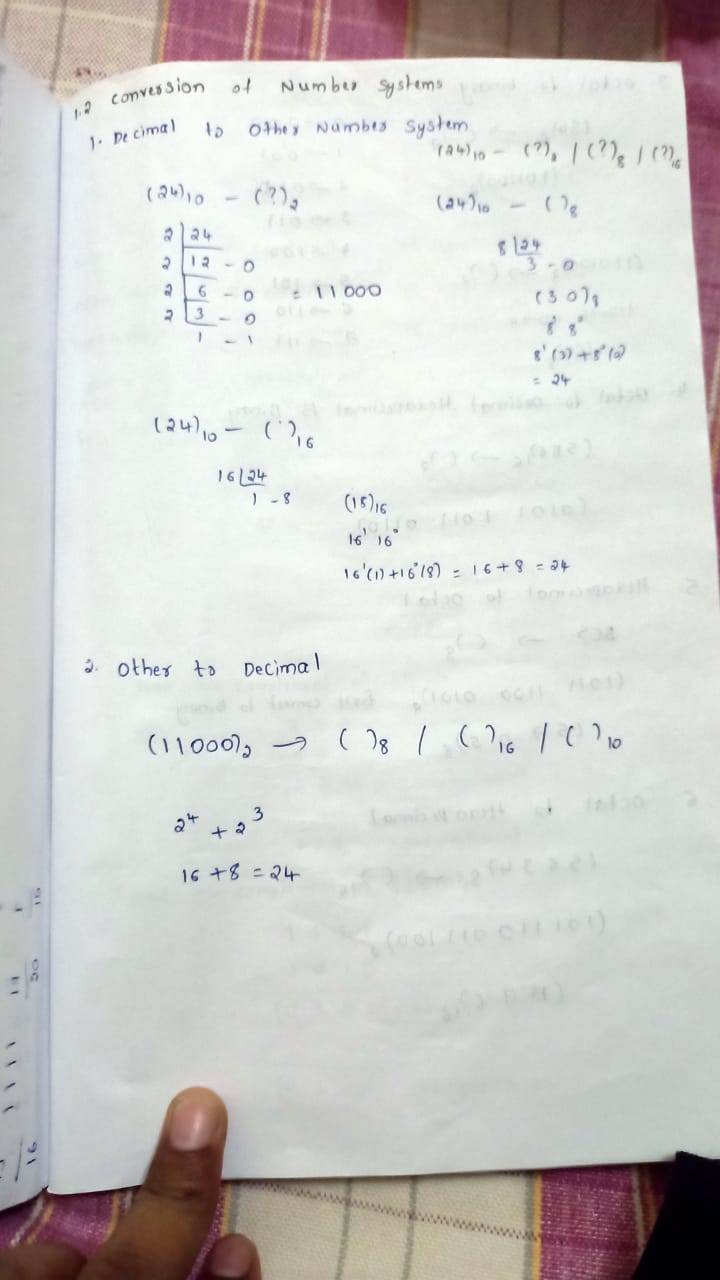 1.2 conversion of Number Systems
1. Decimal to Other Number System
(24)10 - (?)2 / (?)8 / (?)16
(24)10 - (?)2
2 24
2 12 - 0
2 6 - 0 = 11000
2 3 - 0
1 - 1
(24)10 - ( )8
8 24
3 - 0
(30)8
8¹ 8⁰
8¹(3) + 8⁰(0)
= 24
(24)10 - ( )16
16 24
1 - 8
(18)16
16¹ 16⁰
16¹(1) + 16⁰(8) = 16 + 8 = 24
2. Other to Decimal
(11000)2 → ( )8 / ( )16 / ( )10
2⁴ + 2³
16 + 8 = 24